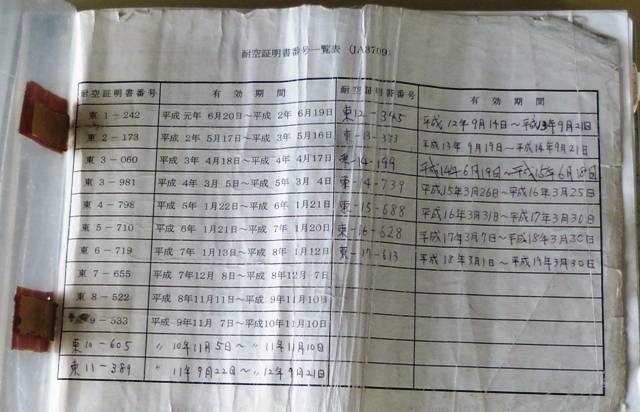 耐空証明書番号一覧表 (JA3709)
耐空証明書番号 有効期間 耐空証明書番号 有効期間
東 1-242 平成 元年 6月20日~平成 2年 6月19日 東12-345 平成12年9月14日~平成13年9月21日
東 2-173 平成 2年 5月17日~平成 3年 5月16日 東-13-333 平成13年9月19日~平成14年9月21日
東 3-060 平成 3年 4月18日~平成 4年 4月17日 東-14-199 平成14年6月19日~平成15年6月18日
東 3-981 平成 4年 3月 5日~平成 5年 3月 4日 東-14-739 平成15年3月26日~平成16年3月25日
東 4-798 平成 5年 1月22日~平成 6年 1月21日 東-15-688 平成16年3月31日~平成17年3月30日
東 5-710 平成 6年 1月21日~平成 7年 1月20日 東-16-628 平成17年3月7日~平成18年3月30日
東 6-719 平成 7年 1月13日~平成 8年 1月12日 東-17-613 平成18年3月1日~平成19年3月30日
東 7-655 平成 7年12月 8日~平成 8年12月 7日
東 8-522 平成 8年11月11日~平成 9年11月10日
9-533 平成 9年11月 7日~平成10年11月10日
東10-605 〃 10年11月5日~〃 11年11月10日
東 11-389 〃 11年9月22日~〃 12年9月21日